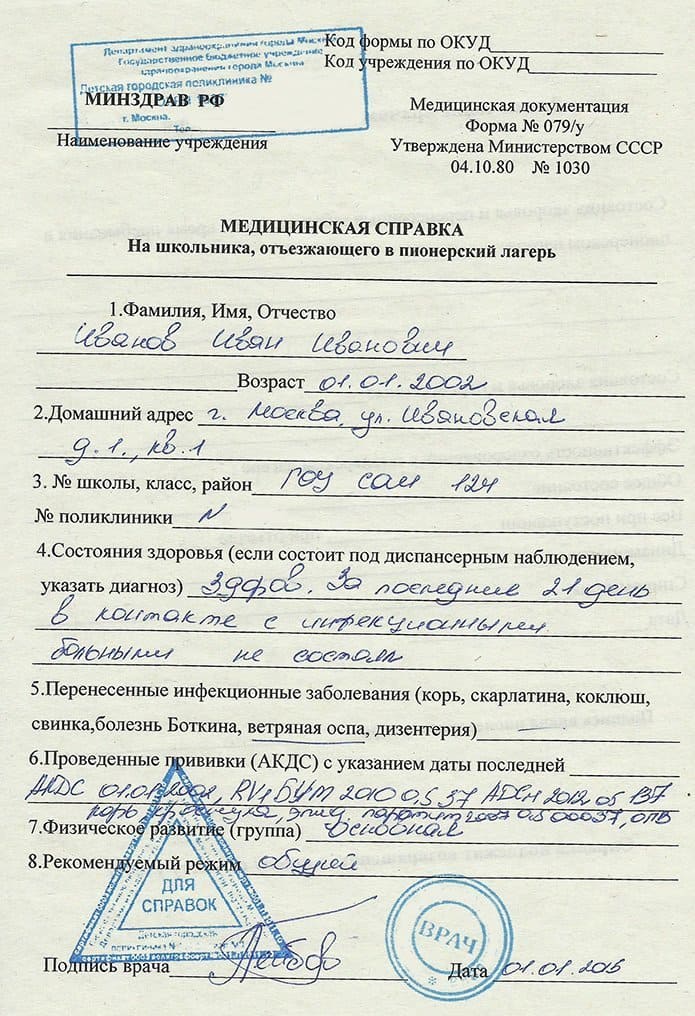 Департамент здравоохранения города Москвы
Государственное бюджетное учреждение
здравоохранения города Москвы
Детская городская поликлиника №
г. Москва.
Тел.
Код формы по ОКУД
Код учреждения по ОКУД
МИНЗДРАВ РФ
Наименование учреждения
Медицинская документация
Форма № 079/у
Утверждена Министерством СССР
04.10.80 № 1030
МЕДИЦИНСКАЯ СПРАВКА
На школьника, отъезжающего в пионерский лагерь
1.Фамилия, Имя, Отчество
Иванов Иван Иванович
Возраст 01.01.2002
2.Домашний адрес г. Москва, ул. Ивановская
д.1., кв.1
3. № школы, класс, район ГОУ сош 124
№ поликлиники N
4.Состояния здоровья (если состоит под диспансерным наблюдением,
указать диагноз) Здоров. За последние 21 день
в контакте с инфекционными
больными не состоял
5.Перенесенные инфекционные заболевания (корь, скарлатина, коклюш,
свинка,болезнь Боткина, ветряная оспа, дизентерия) —
6.Проведенные прививки (АКДС) с указанием даты последней
АКДС 01.01.2002, 2010 0,5 37 АДСм 2012 05 137
корь, краснуха, эпид. паротит 2007 0.5 00037,
7.Физическое развитие (группа) основная
8.Рекомендуемый режим общий
ДЛЯ
СПРАВОК
Детская городская
поликлиника №
ВРАЧ
Подпись врача
Дата 01.01.2015